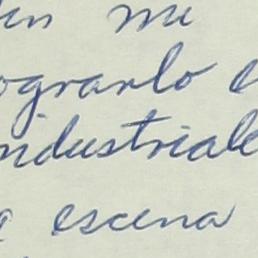 en mi
ograrlo e
ndustriale
a escena